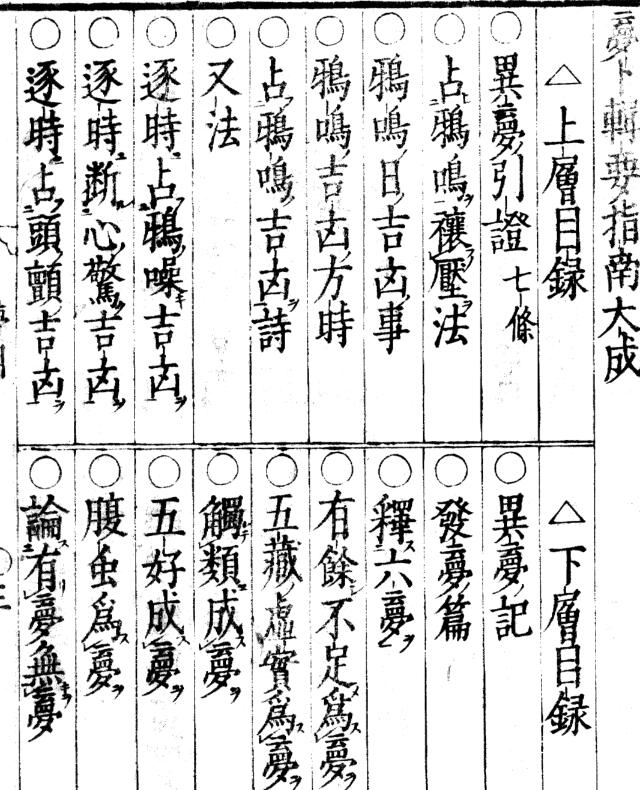 夢卜輯要指南大成
△上層目録
○異夢引證 七條
○占鴉鳴禳壓法
○鴉鳴日吉凶事
○鴉鳴吉凶方時
○占鴉鳴吉凶詩
○又法
○逐時占鴉噪吉凶
○逐時断心驚吉凶
○逐時占頭顫吉凶
△下層目録
○異夢記
○發夢篇
○釋六夢
○有餘不足爲夢
○五藏虚實爲夢
○觸類成夢
○五好成夢
○腹虫爲夢
○論有夢無夢